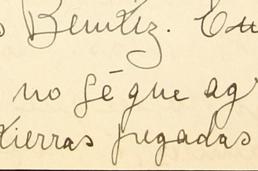 Benitez.
no sé que
tierras pegadas